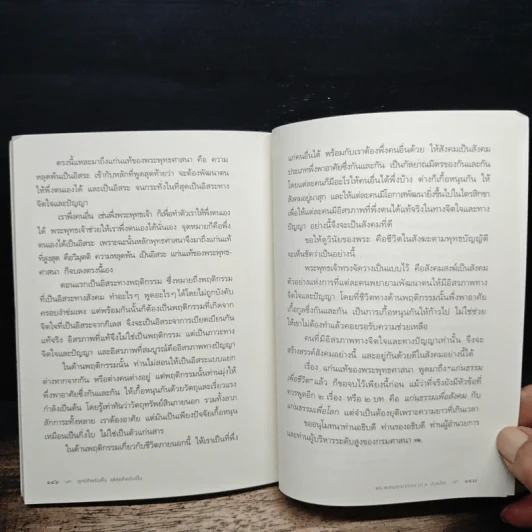 ตรงนี้แหละมาถึงแก่นแท้ของพระพุทธศาสนา คือ ความ
หลุดพ้นเป็นอิสระ เข้ากับหลักที่พูดสุดท้ายว่า จะต้องพัฒนาตน
ให้พึ่งตนเองได้ และเป็นอิสระ จนกระทั่งในที่สุดเป็นอิสระทาง
จิตใจและปัญญา
เราพึ่งคนอื่น เช่นพึ่งพระพุทธเจ้า ก็เพื่อทำตัวเราให้พึ่งตนเอง
ได้ พระพุทธเจ้าช่วยให้เราพึ่งตนเองได้นั่นเอง จุดหมายก็คือพึ่ง
ตนเองได้เป็นอิสระ เพราะฉะนั้นหลักพุทธศาสนาจึงมาถึงแก่นแท้
ที่สูงสุด คือวิมุตติ ความหลุดพ้น เป็นอิสระ แก่นแท้ของพระพุทธ-
ศาสนา ก็จบลงตรงนี้เอง
ตอนแรกเป็นอิสระทางพฤติกรรม ซึ่งหมายถึงพฤติกรรม
ที่เป็นอิสระทางสังคม ทำอะไรๆ พูดอะไรๆ ได้โดยไม่ถูกบังคับ
ครอบงำข่มเหง แต่พร้อมกันนั้นก็ต้องเป็นพฤติกรรมที่เกิดจาก
จิตใจที่เป็นอิสระจากกิเลส จึงจะเป็นอิสระจากการเบียดเบียนกัน
แท้จริง อิสรภาพที่แท้จึงไม่ใช่เป็นแค่พฤติกรรม แต่เป็นภาวะทาง
จิตใจและปัญญา และอิสรภาพที่สมบูรณ์คืออิสรภาพทางปัญญา
ในด้านพฤติกรรมนั้น ท่านไม่สอนให้เป็นอิสระแบบแยก
ต่างหากจากกัน หรือต่างคนต่างอยู่ แต่พฤติกรรมนั้นท่านมุ่งให้
พึ่งพาอาศัยซึ่งกันและกัน ให้เกื้อหนุนกันด้วยวัตถุและเรี่ยวแรง
กำลังเป็นต้น โดยรู้เท่าทันว่าวัตถุทรัพย์สินภายนอก รวมทั้งลาภ
สักการะทั้งหลาย เราต้องอาศัย แต่มันเป็นเพียงปัจจัยเกื้อหนุน
เหมือนเป็นกิ่งใบ ไม่ใช่เป็นตัวแก่นสาร
ในด้านพฤติกรรมเกี่ยวกับชีวิตภายนอกนี้ ให้เราเป็นที่พึ่ง
แก่คนอื่นได้ พร้อมกับเราต้องพึ่งคนอื่นด้วย ให้สังคมเป็นสังคม
ประเภทพึ่งพาอาศัยซึ่งกันและกัน เป็นกัลยาณมิตรของกันและกัน
โดยแต่ละคนก็มีอะไรให้คนอื่นได้พึ่งบ้าง ต่างก็เกื้อหนุนกัน ให้
สังคมอยู่ผาสุก และให้แต่ละคนมีโอกาสพัฒนายิ่งขึ้นไปในไตรสิกขา
เพื่อให้แต่ละคนมีอิสรภาพที่พึ่งตนได้แท้จริงในทางจิตใจและทาง
ปัญญา อย่างนี้จึงจะเป็นคนที่ดี
ขอให้ดูวินัยของพระ คือชีวิตในสังฆะตามพุทธบัญญัติ
จะเห็นชัดว่าเป็นอย่างนี้
พระพุทธเจ้าทรงจัดวางเป็นแบบไว้ คือสังคมสงฆ์เป็นสังคม
ตัวอย่างแห่งการที่แต่ละคนพยายามพัฒนาตนให้มีอิสรภาพทาง
จิตใจและปัญญา โดยที่ชีวิตทางด้านพฤติกรรมนั้นพึ่งพาอาศัย
เกื้อกูลซึ่งกันและกัน เป็นการเกื้อหนุนกันให้ก้าวไป ไม่ใช่ช่วย
ให้เขาไม่ต้องทำแล้วคอยรอรับความช่วยเหลือ
คนที่มีอิสรภาพทางจิตใจและทางปัญญาเท่านั้น จึงจะ
สร้างสรรค์สังคมอย่างนี้ และอยู่กันด้วยดีในสังคมอย่างนี้ได้
เรื่อง แก่นแท้ของพระพุทธศาสนา พูดมาถึงแก่นธรรม
เพื่อชีวิตแล้ว ก็ขอจบไว้เพียงนี้ก่อน แม้ว่าที่จริงยังมีหัวข้อที่
ควรพูดอีก ๒ เรื่อง หรือ ๒ บท คือ แก่นธรรมเพื่อสังคม กับ
แก่นธรรมเพื่อโลก แต่จำเป็นต้องยุติเพราะความยาวที่เกินเวลา
ขออนุโมทนาท่านอธิบดี ท่านรองอธิบดี ท่านผู้อำนวยการ
และท่านผู้บริหารระดับสูงของกรมศาสนา